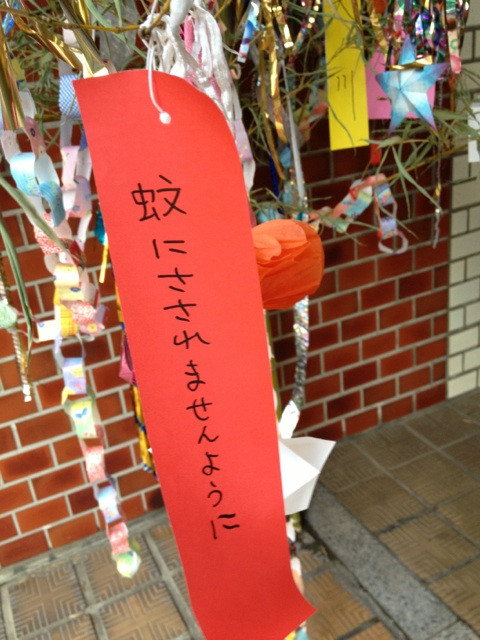 蚊にさされませんように